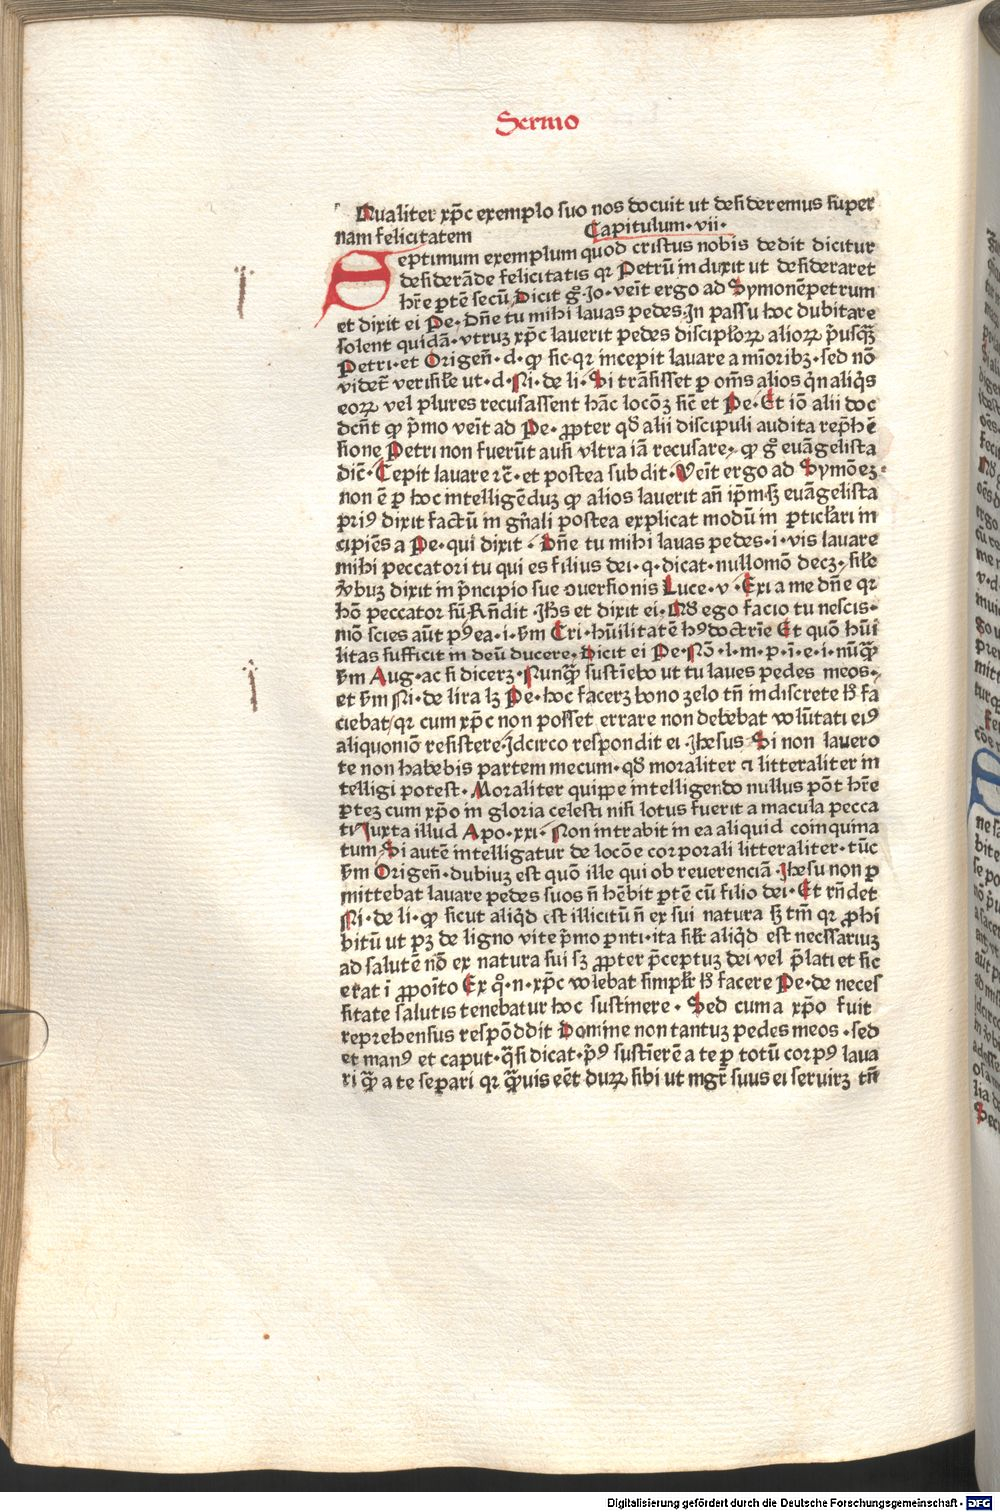 Sermo
Qualiter xp̄c exemplo suo nos docuit ut desideremus super
nam felicitatem Capitulum·vii·
Septimum exemplum quod cristus nobis dedit dicitur
desiderāde felicitatis qꝛ Petrū induxit ut desideraret
hr̄e ꝑtē secū Dicit gͦ Jo·veīt ergo ad Symonē petrum
et dixit ei Pe· Dn̄e tu mihi lauas pedes· In passu hoc dubitare
solent quidā· vtruꝫ xp̄c lauerit pedes discipłoꝝ alioꝝ p̄usqꝫ
Petri· et Origen̄· d· ꝙ sic· qꝛ incepit lauare a mīoribꝫ· sed nō
videt̄ verisiłe ut· d· Ni· de li· Si trāsisset p om̄s alios qn aliqs
eoꝝ vel plures recusassent hāc locōꝫ sic̄ et Pe· Et iō alii doc
dcn̄t ꝙ p̄mo veīt ad Pe· ꝓpter qď alii discipuli audita rep̄hē
sione Petri non fuerūt ausi vltra iā recusare· ꝙ gͦ euāgelista
dic̄· Cepit lauare ⁊c̄· et postea subdit· Veīt ergo ad Symōeꝫ
non ē ꝑ hoc intelligēduꝫ ꝙ alios lauerit an̄ ip̄m·sꝫ euāgelista
priꝰ dixit factū in gn̄ali postea explicat modū in ꝑticłari in
cipiēs a Pe· qui dixit· Dn̄e tu mihi lauas pedes· i· vis lauare
mihi peccatori tu qui es filius dei· q· dicat· nullomō decꝫ· siłe
v̄buꝫ dixit in p̄ncipio sue ꝯuersionis Luce· v· Exi a me dn̄e qꝛ
hō peccator sū Rn̄dit· Jh̄s et dixit ei· Qď ego facio tu nescis·
mō scies aūt pꝰea· i· s̄m Cri· hūilitatē hꝰ doctrīe Et quō hūi
litas sufficit in deū ducere· Dicit ei Pe· Nō· l· m· p· ī· e· i· nūqꝫ
s̄m Aug· ac si dicerꝫ· Nunqꝫ sustīebo ut tu laues pedes meos·
et s̄m Ni· de lira lꝫ Pe· hoc facerꝫ bono zelo tn̄ indiscrete h̄ fa
ciebat/ qꝛ cum xp̄c non posset errare non debebat volūtati eiꝰ
aliquonīo resistere· Jdcirco respondit ei· Jhesus Si non lauero
te non habebis partem mecum· qď moraliter ⁊ litteraliter in
telligi potest· Moraliter quippe intelligendo nullus pōt hr̄e
ꝑteꝫ cum xp̄o in gloria celesti nisi lotus fuerit a macula pecca
ti Juxta illud Apo·xxi· Non intrabit in ea aliquid coinquina
tum Si autē intelligatur de locōe corporali litteraliter· tūc
s̄m Origen̄· dubiuꝫ est quō ille qui ob reuerenciā Jhesu non p
mittebat lauare pedes suos n̄ hēbit ꝑtē cū filio dei· Et rn̄det
Ni· de li· ꝙ sicut aliqd est illicitū n̄ ex sui natura sꝫ tm̄ qꝛ ꝓhi
bitū ut pꝫ de ligno vite p̄mo ꝑnti· ita siłr aliqd est necssariuꝫ
ad salutē nō ex natura sui sꝫ ꝓpter p̄ceptuꝫ dei vel p̄lati et sic
erat ī ꝓpoīto Ex qͦ·n·xp̄c volebat simpłr h̄ facere Pe· de neces
sitate salutis tenebatur hoc sustinere· Sed cum a xp̄o fuit
reprehensus respōddit Domine non tantuꝫ pedes meos· sed
et manꝰ et caput· qsi dicat· p̄ꝰ sustīerē a te ꝑ totū corpꝰ laua
ri qꝫ a te separi qꝛ qꝫuis eēt duꝝ sibi ut mgr̄ suus ei seruirꝫ tn̄
Digitalisierung gefördert durch die Deutsche Forschungsgemeinschaft - DFG